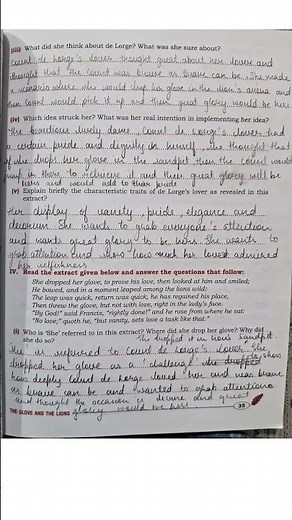 (iii) What did she think about de Lorge? What was she sure about?
Count de Lorge's lover thought great about her lover and
thought that the count was brave as brave can be. She made
a scenario where she would drop her glove in the lion's arena and
then count would pick it up and then great glory would be hers
(iv) Which idea struck her? What was her real intention in implementing her idea?
The beauteous lively dame, Count de Lorge's lover had
a certain pride and dignity in herself, she thought that
if she drops her glove in the sandpit then the count would
jump in there to retrieve it and then great glory will be
hers and would add to their pride
(v) Explain briefly the characteristic traits of de Lorge's lover as revealed in this
extract?
Her display of vanity, pride, elegance and
decorum. She wants to grab everyone's attention
and wants great glory to be hers. She wants to
grab attention and show how much her loved admired
her selfishness
IV. Read the extract given below and answer the questions that follow:
She dropped her glove, to prove his love, then looked at him and smiled;
He bowed, and in a moment leaped among the lions wild:
The leap was quick, return was quick, he has regained his place,
Then threw the glove, but not with love, right in the lady's face.
"By God!" said Francis, "rightly done!" and he rose from where he sat:
"No love," quoth he, "but vanity, sets love a task like that."
(i) Who is 'She' referred to in this extract? Where did she drop her glove? Why did
she do so? She dropped it in lion's sandpit.
She is referred to Count de Lorge's lover. She
dropped her glove as a challenge she show
how deeply Count de Lorge loved her and was brave
as brave can be and wanted to grab attention
and thought the occasion is divine and great
glory would be hers
THE GLOVE AND THE LIONS
35